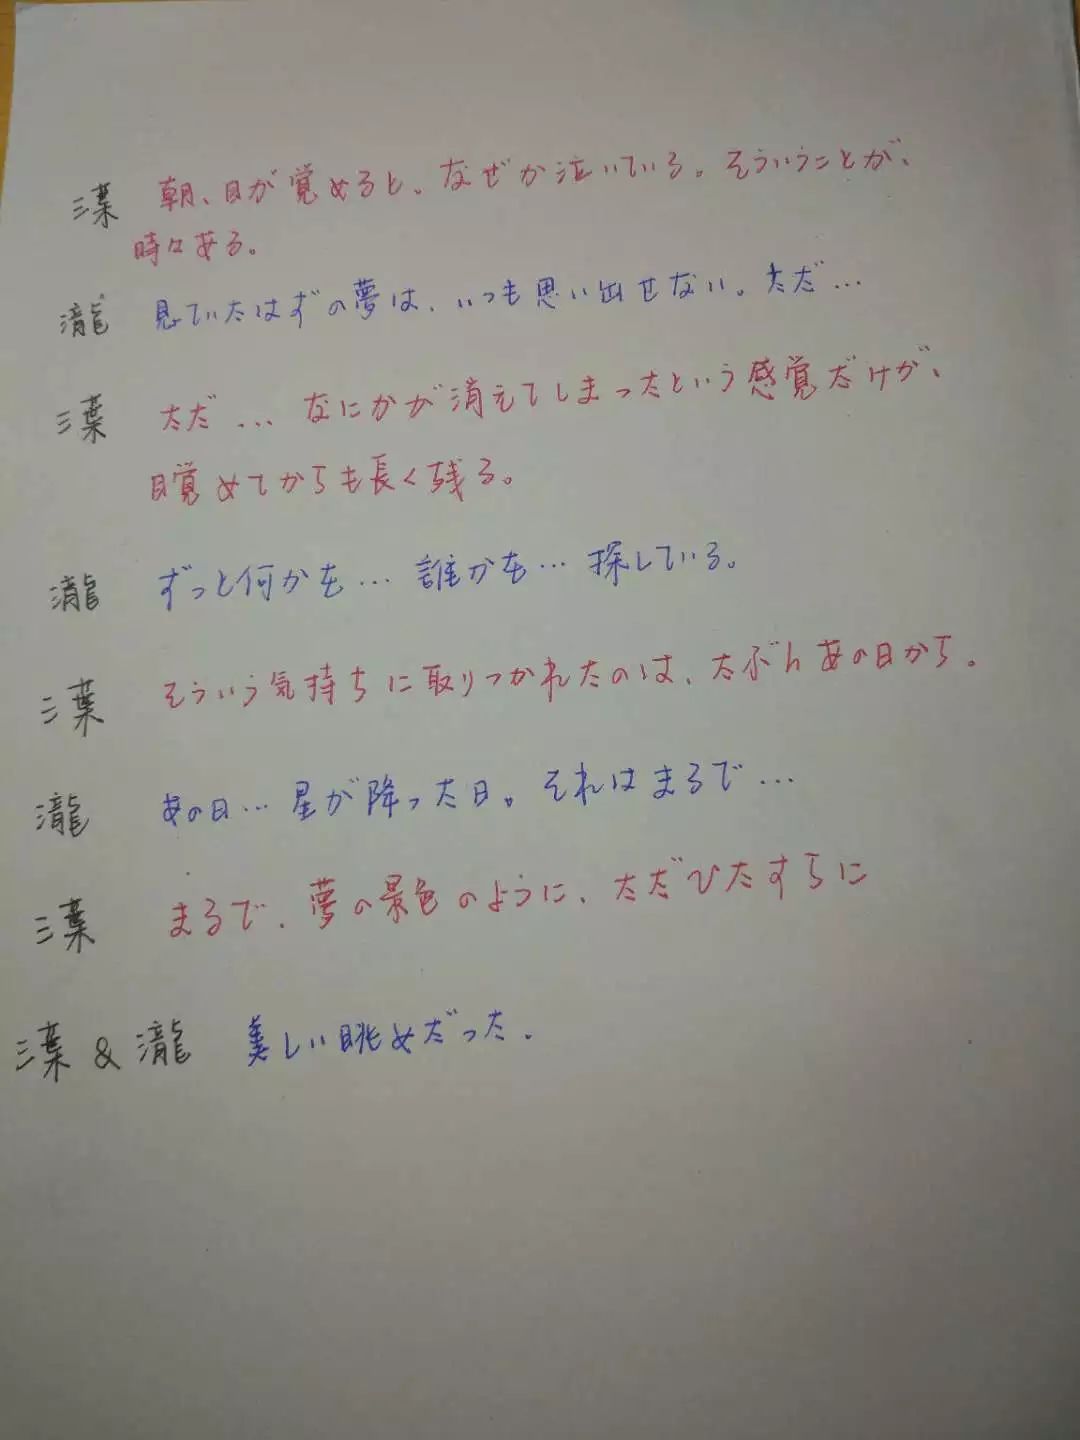 三葉 朝、目が覚めると、なぜか泣いている。そういうことが、
時々ある。
瀧 見ていたはずの夢は、いつも思い出せない。ただ…
三葉 ただ…なにかが消えてしまったという感覚だけが、
目覚めてからも長く残る。
瀧 ずっと何かを…誰かを…探している。
三葉 そういう気持ちに取りつかれたのは、たぶんあの日から。
瀧 あの日…星が降った日。それはまるで…
三葉 まるで、夢の景色のように、ただひたすらに
三葉 & 瀧 美しい眺めだった.